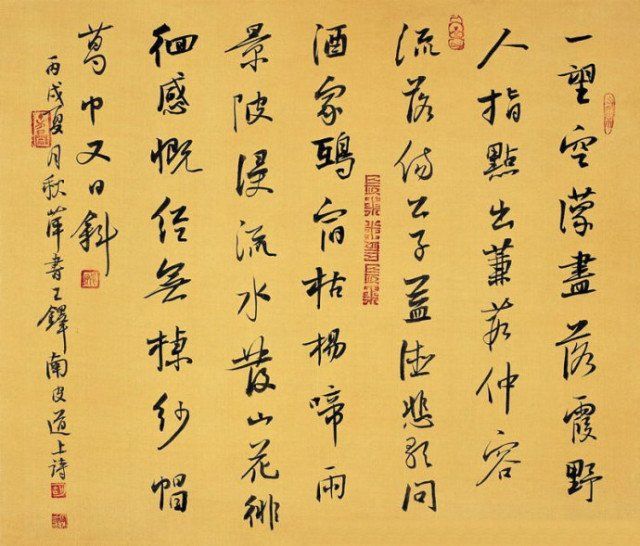 一望空濛盡落霞野
人指點出蒹葭仲容
流落傷公子益德悲歌問
酒家鵶宿枯楊啼雨
景陂浸流水發山花徘
徊感慨無紗帽
葛巾又日斜
丙戌夏月秋萍書王鐸南皮道上詩